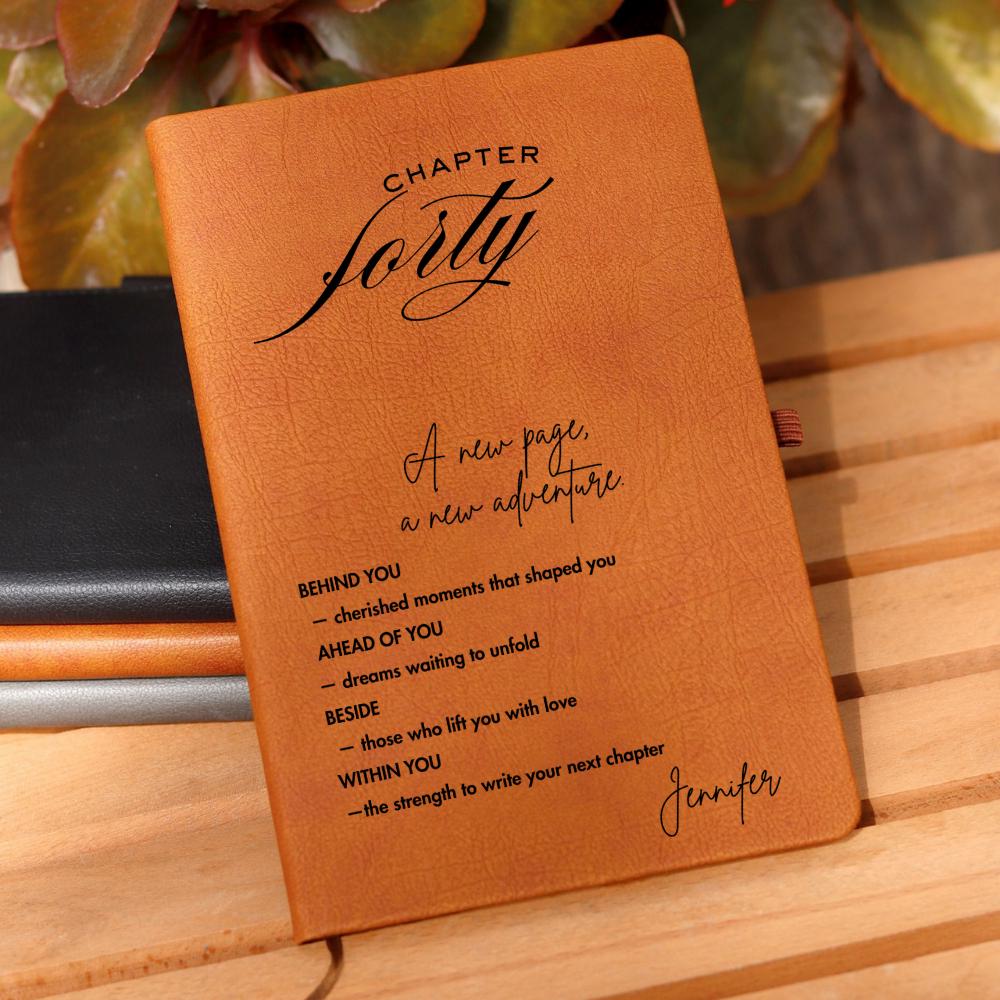 CHAPTER
forty
A new page,
a new adventure.
BEHIND YOU
— cherished moments that shaped you
AHEAD OF YOU
— dreams waiting to unfold
BESIDE
— those who lift you with love
WITHIN YOU
—the strength to write your next chapter
Jennifer